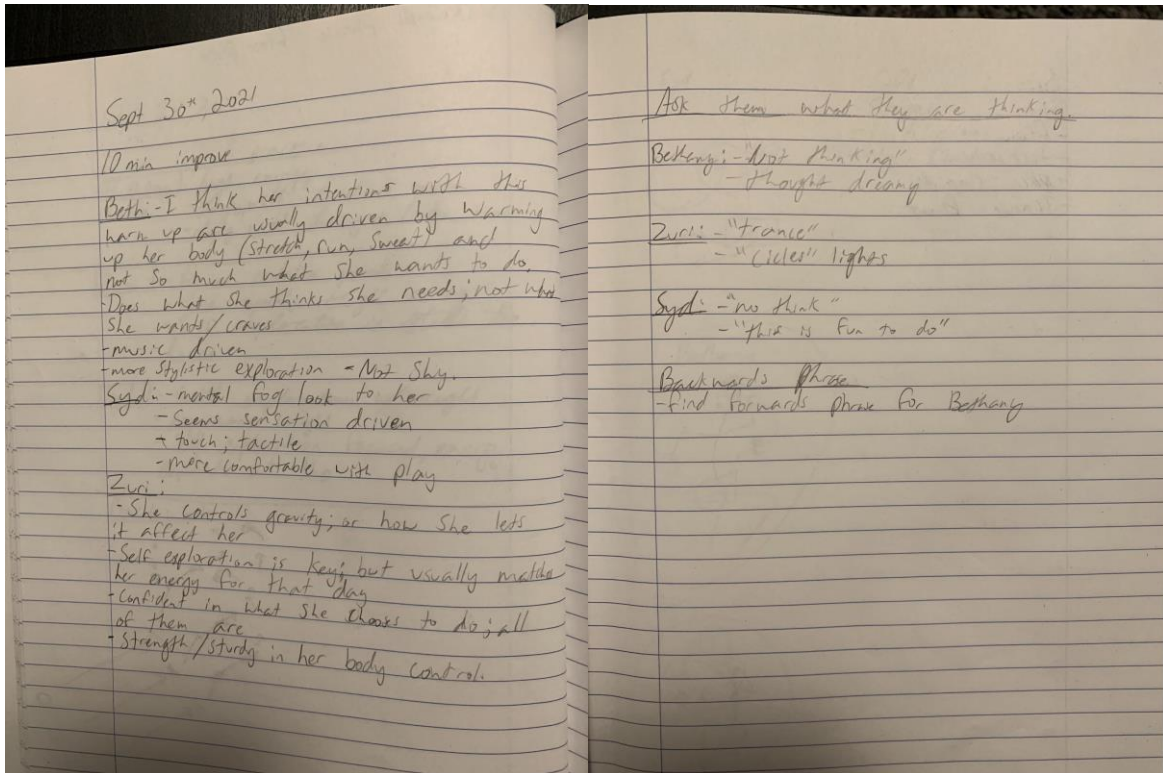 Sept 30th, 2021
10 min improve
Beth:-I think her intentions with this
warm up are usually driven by warming
up her body (stretch, run, sweat) and
not so much what she wants to do.
-Does what she thinks she needs; not what
she wants/craves
-music driven
-more stylistic exploration - Not Shy.
Syd:-mental fog look to her
-Seems sensation driven
-touch; tactile
-more comfortable with play
Zuri:
-She controls gravity; or how she lets
it affect her
-Self exploration is key; but usually matches
her energy for that day
-Confident in what she chooses to do; all
of them are
-Strength/sturdy in her body control.
Ask them what they are thinking.
Bethany:-"Not thinking"
-thought dreamy
Zuri:-"trance"
-"Cicles" lights
Syd:-"no think"
-"this is fun to do"
Backwards Phrase
-find forwards phrase for Bethany